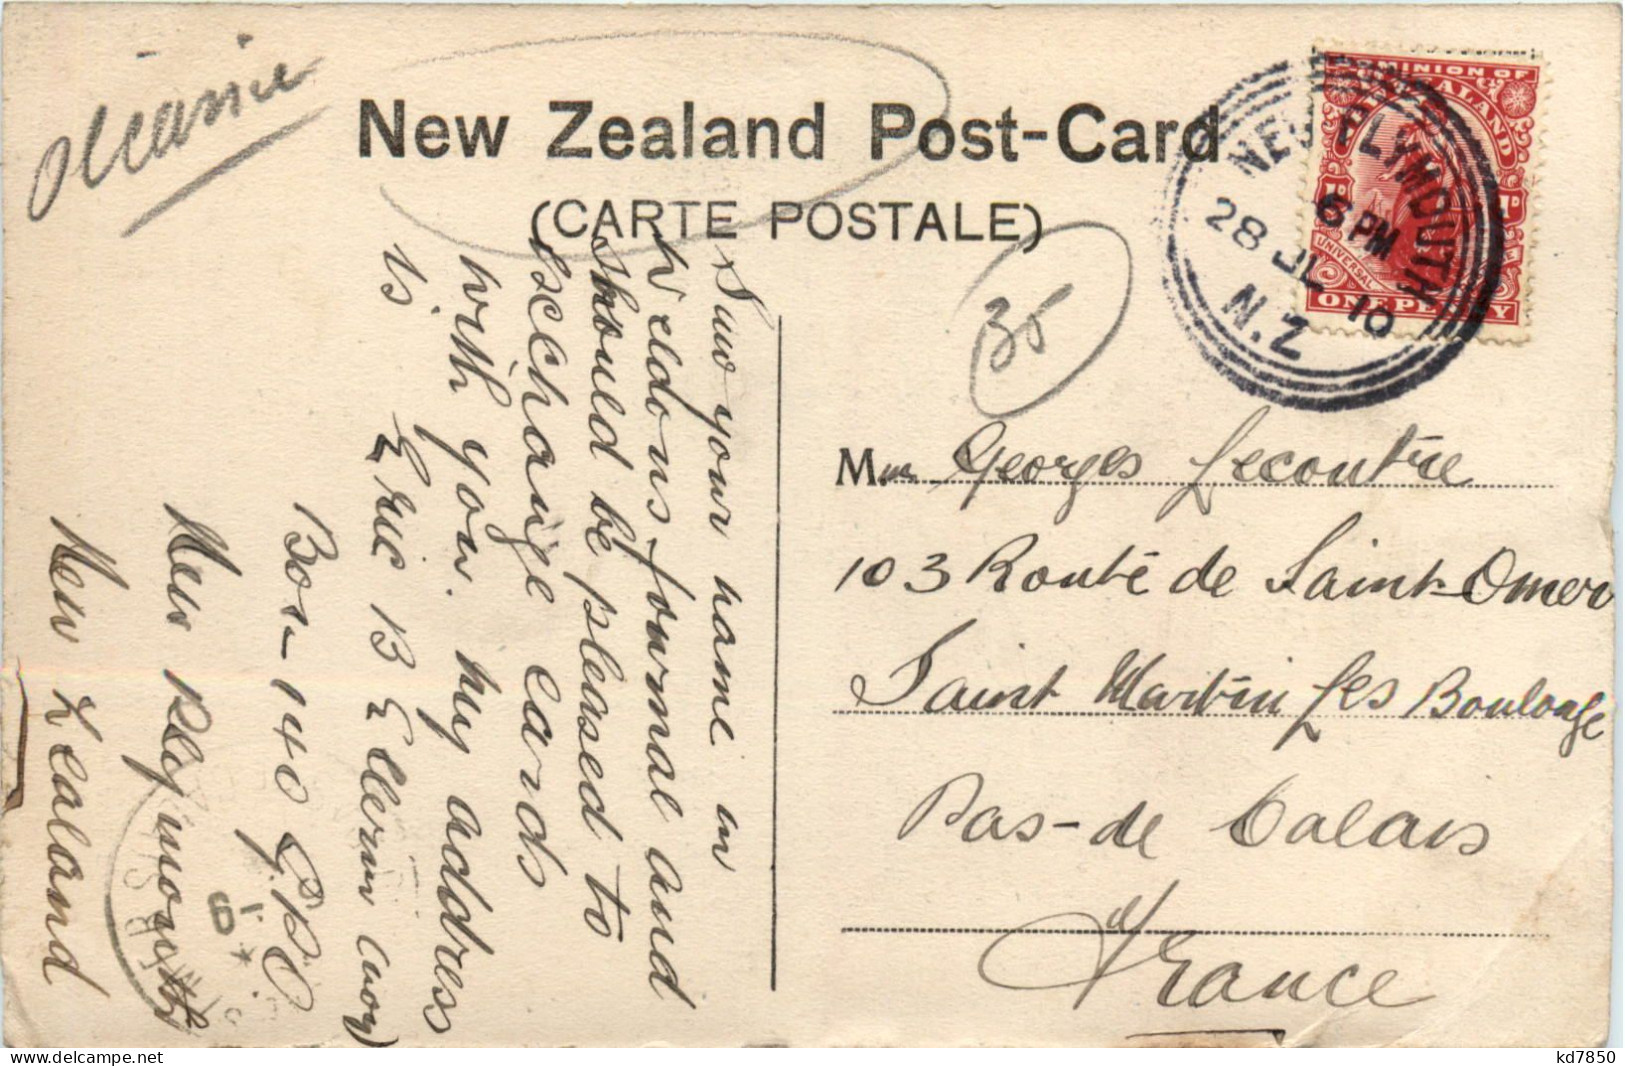 Oceanie
New Zealand Post-Card
(CARTE POSTALE)
DOMINION OF
ZEALAND
UNIVERSAL
ONE PENNY
NEW PLYMOUTH
6 PM
28 JL 10
N.Z
35
Saw your name in
Weldons fournal and
should be pleased to
escchange cards
with you. My address
is Eric B Ellerm
Box 140 G.P.O
New Plymouth
New Zealand
M. Georges Lecontre
103 Route de Saint-Omer
Saint Martin Les Boulogne
Pas-de Calais
France
kd7850